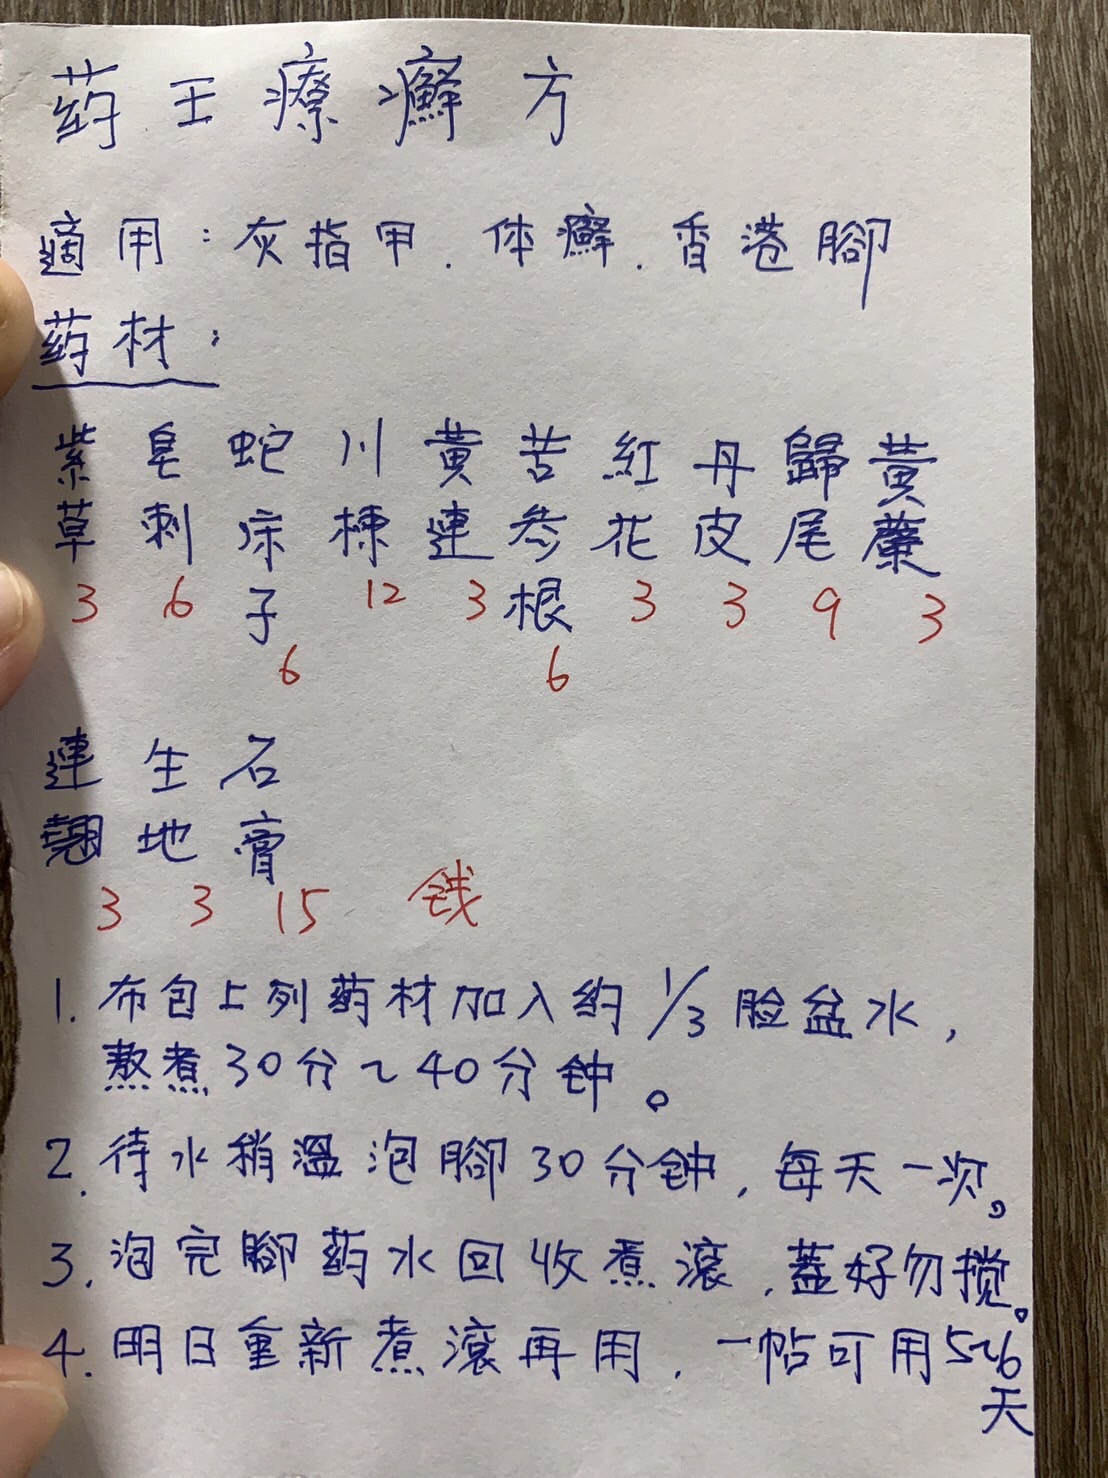 药王療癬方
適用：灰指甲．体癬．香港腳
药材：
紫草 3
皂刺 6
蛇床子 6
川楝 12
黃連 3
苦参根 6
紅花 3
丹皮 3
歸尾 9
黃 3
連翹 3
生地 3
石膏 15
钱
1. 布包上列药材加入约1/3脸盆水，
熬煮30分~40分钟。
2. 待水稍溫泡腳30分钟，每天一次。
3. 泡完腳药水回收煮滾，蓋好勿搅。
4. 明日重新煮滾再用，一帖可用5~6
天